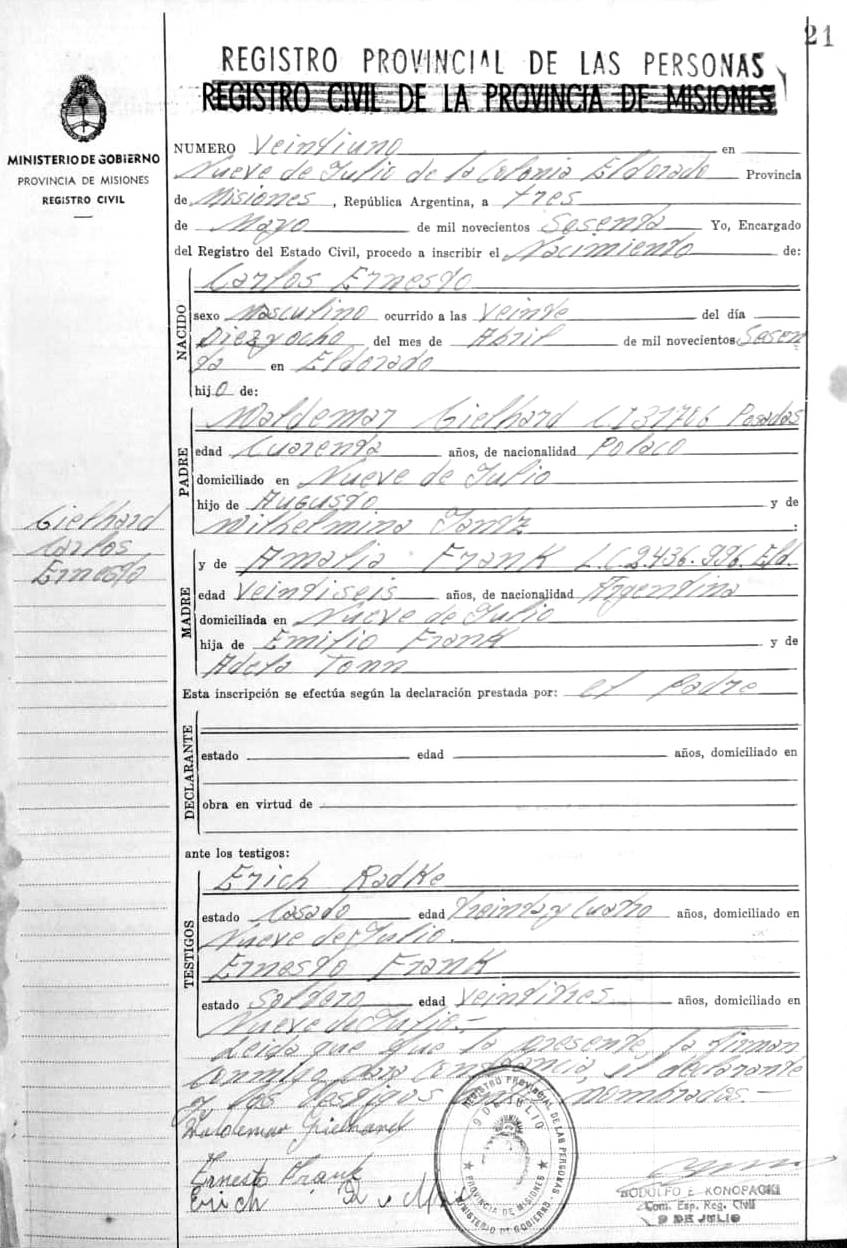 21
REGISTRO PROVINCIAL DE LAS PERSONAS
REGISTRO CIVIL DE LA PROVINCIA DE MISIONES
MINISTERIO DE GOBIERNO
PROVINCIA DE MISIONES
REGISTRO CIVIL
NUMERO Veintiuno en
Nueve de Julio de la Colonia Eldorado Provincia
de Misiones, República Argentina, a tres
de Mayo de mil novecientos Sesenta Yo, Encargado
del Registro del Estado Civil, procedo a inscribir el Nacimiento de:
NACIDO
Carlos Ernesto
sexo Masculino ocurrido a las Veinte del día
Diez y ocho del mes de Abril de mil novecientos Sesen
ta en Eldorado
hijo de:
PADRE
Waldemar Gielhard CI 31706 Posadas
edad Cuarenta años, de nacionalidad Polaco
domiciliado en Nueve de Julio
hijo de Augusto y de
Wilhelmina :
Gielhard
Carlos
Ernesto
MADRE
y de Amalia Frank L.C. 2.436.996. Eld.
edad Veintiseis años, de nacionalidad Argentina
domiciliada en Nueve de Julio
hija de Emilio Frank y de
Adela Tonn
Esta inscripción se efectúa según la declaración prestada por: el Padre
DECLARANTE
estado edad años, domiciliado en
obra en virtud de
ante los testigos:
TESTIGOS
Erich Radke
estado Casado edad treinta y Cuatro años, domiciliado en
Nueve de Julio.
Ernesto Frank
estado Soltero edad Veintitres años, domiciliado en
Nueve de Julio.-
Leida que fue la presente, la firman
Conmigo para Constancia, el declarante
y los testigos nombrados.-
Waldemar Gielhard
Ernesto Frank
Erich
REGISTRO PROVINCIAL DE LAS PERSONAS
9 DE JULIO
PROVINCIA DE MISIONES
MINISTERIO DE GOBIERNO
RODOLFO E. KONOPACKI
Com. Esp. Reg. Civil
9 DE JULIO